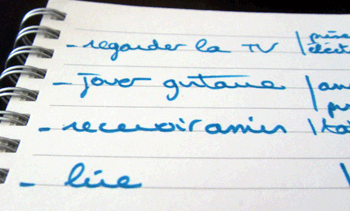 - regarder la TV
- Jouer guitare
- recevoir amies
- lire